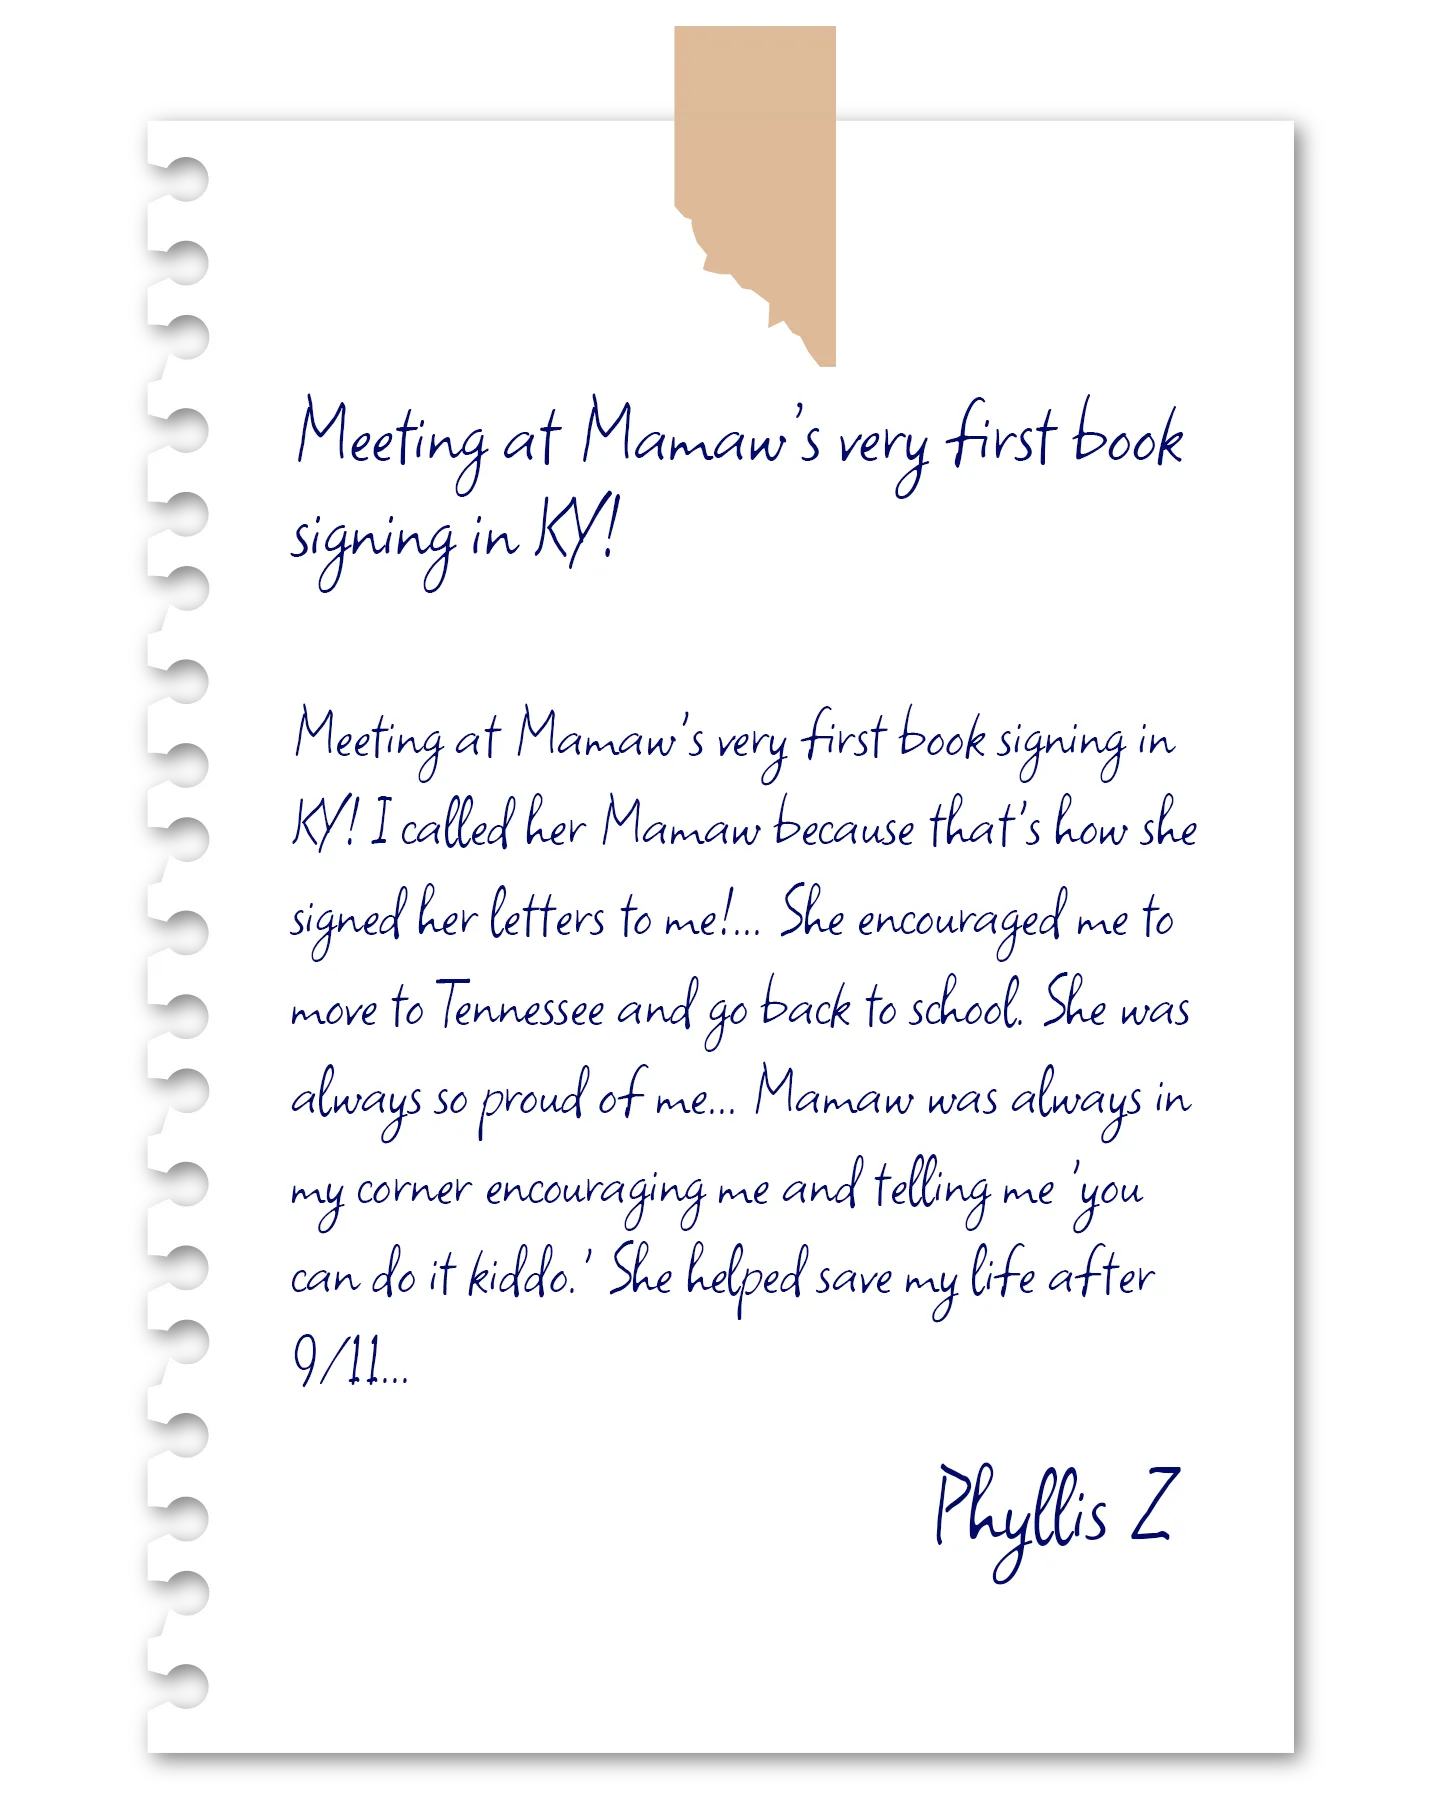 Meeting at Mamaw's very first book
signing in KY!
Meeting at Mamaw's very first book signing in
KY! I called her Mamaw because that's how she
signed her letters to me!... She encouraged me to
move to Tennessee and go back to school. She was
always so proud of me... Mamaw was always in
my corner encouraging me and telling me 'you
can do it kiddo.' She helped save my life after
9/11...
Phyllis Z